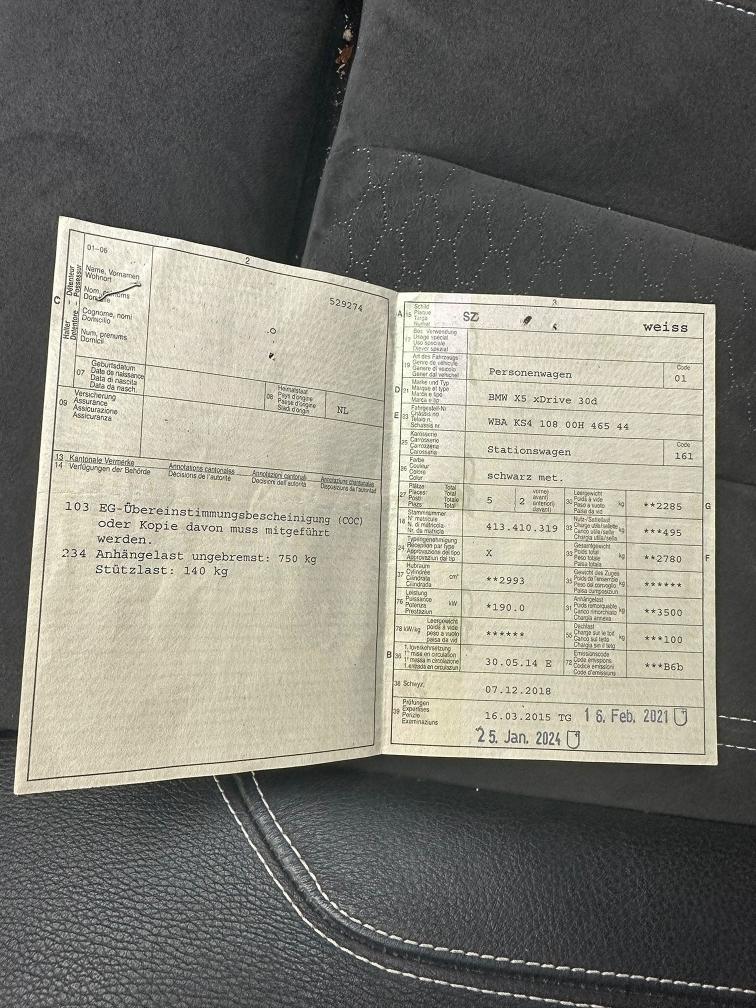 01-06
2
529274
C
Halter
Détenteur
Detentore
Possessur
Name, Vornamen
Wohnort
Cognome, nomi
Domicilio
Num, prenums
Domicil
07
Geburtsdatum
Date de naissance
Data di nascita
Data da nasch.
08
Heimatstaat
Pays d'origine
Paese d'origine
Stadi d'origin
NL
09
Versicherung
Assurance
Assicurazione
Assicuranza
13 Kantonale Vermerke Annotations cantonales Annotazioni cantonali Annotaziuns chantunalas
14 Verfügungen der Behörde Décisions de l'autorité Decisioni dell'autorità Disposiziuns da l'autoritad
103 EG-Übereinstimmungsbescheinigung (COC)
oder Kopie davon muss mitgeführt
werden.
234 Anhängelast ungebremst: 750 kg
Stützlast: 140 kg
3
A 15
Schild
Plaque
Targa
Numer
SZ
weiss
17
Bes. Verwendung
Usage spécial
Uso speciale
Diever spezial
19
Art des Fahrzeugs
Genre de véhicule
Genere di veicolo
Gener dal vehichel
Personenwagen
Code
01
D 21
Marke und Typ
Marque et type
Marca e tipo
Marca e tip
BMW X5 xDrive 30d
E 23
Fahrgestell-Nr.
Châssis no
Telaio n.
Schassis nr.
WBA KS4 108 00H 465 44
25
Karosserie
Carrosserie
Carrozzeria
Carossaria
Stationswagen
Code
161
26
Farbe
Couleur
Colore
Colur
schwarz met.
27
Plätze Total
Places: Total
Posti Totale
Plazs Total
5
2
vorne)
avant)
anteriori)
davant)
30
Leergewicht
Poids à vide
Peso a vuoto
Paisa da vid
kg
**2285
G
18
Stammnummer
N° matricule
N. di matricola
Nr. da matricla
413.410.319
32
Nutz-/Sattellast
Charge utile/sellette
Carico utile/sella
Chargia utila/sella
kg
***495
24
Typengenehmigung
Réception par type
Approvazione del tipo
Approvaziun dal tip
X
33
Gesamtgewicht
Poids total
Peso totale
Paisa totala
kg
**2780
F
37
Hubraum
Cylindrée
Cilindrata
Cilindrada
cm³
**2993
35
Gewicht des Zuges
Poids de l'ensemble
Peso del convoglio
Paisa cumposiziun
kg
******
76
Leistung
Puissance
Potenza
Prestaziun
kW
*190.0
31
Anhängelast
Poids remorquable
Carico rimorchiato
Chargia annexa
kg
**3500
78 kW/kg
Leergewicht
poids à vide
peso a vuoto
paisa da vid
******
55
Dachlast
Charge sur le toit
Carico sul tetto
Chargia sin il tetg
kg
***100
B 36
1. Inverkehrsetzung
1re mise en circulation
1. messa in circolazione
1. entrada en circulaziun
30.05.14 E
72
Emissionscode
Code émissions
Codice emissioni
Code d'emissiuns
***B6b
38 Schwyz,
07.12.2018
39
Prüfungen
Expertises
Perizie
Examinaziuns
16.03.2015 TG 16. Feb. 2021
25. Jan. 2024